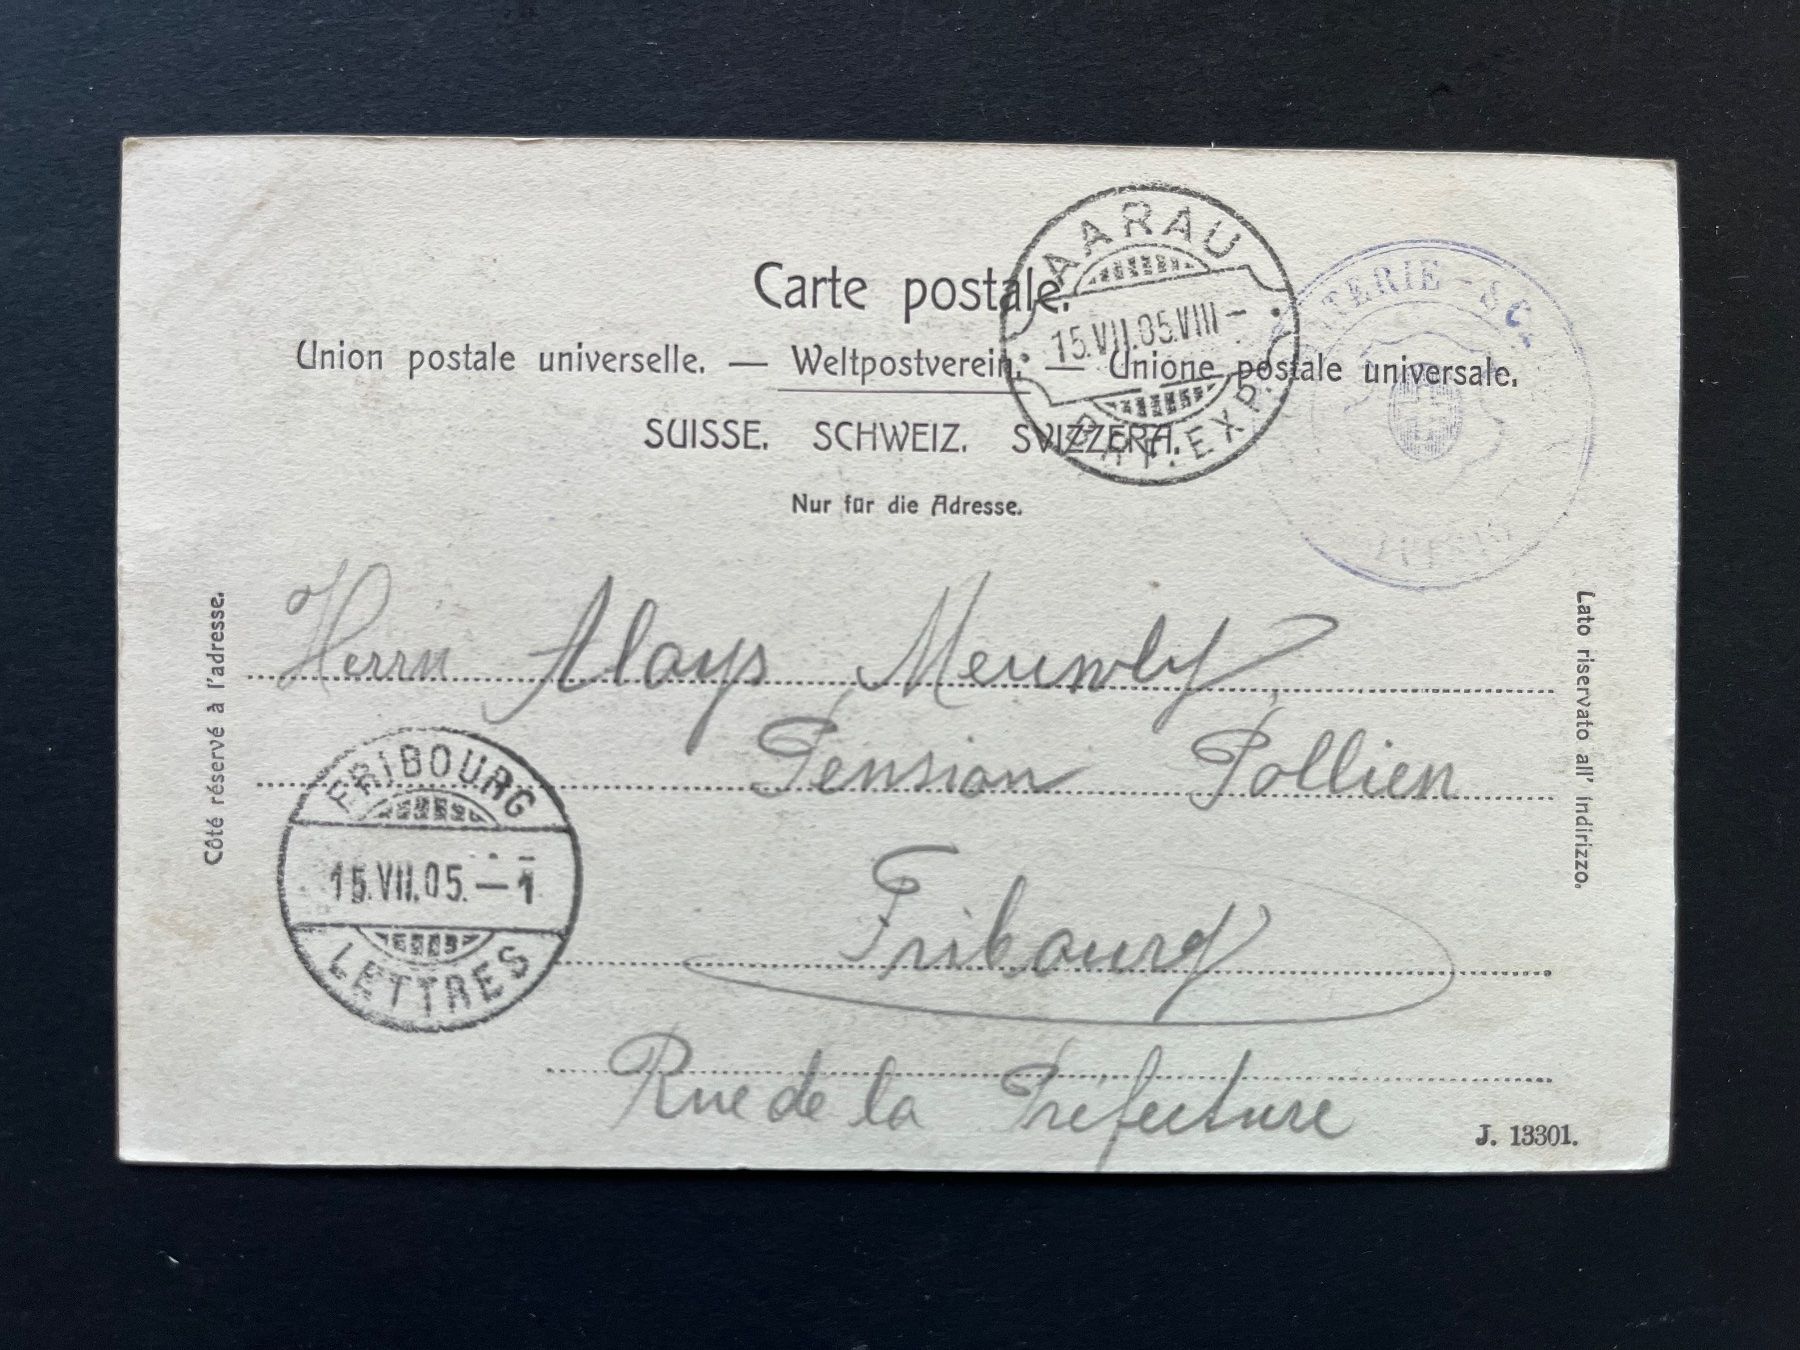 Carte postale.
Union postale universelle. — Weltpostverein. — Unione postale universale.
SUISSE. SCHWEIZ. SVIZZERA.
Nur für die Adresse.
AARAU
15.VII.05.VIII–
EXP.
TERIE-SC
Herrn Aloys Meuwly
Pension Pollien
Fribourg
Rue de la Préfecture
FRIBOURG
15.VII.05.–1
LETTRES
Côté réservé à l'adresse.
Lato riservato all' indirizzo.
J. 13301.